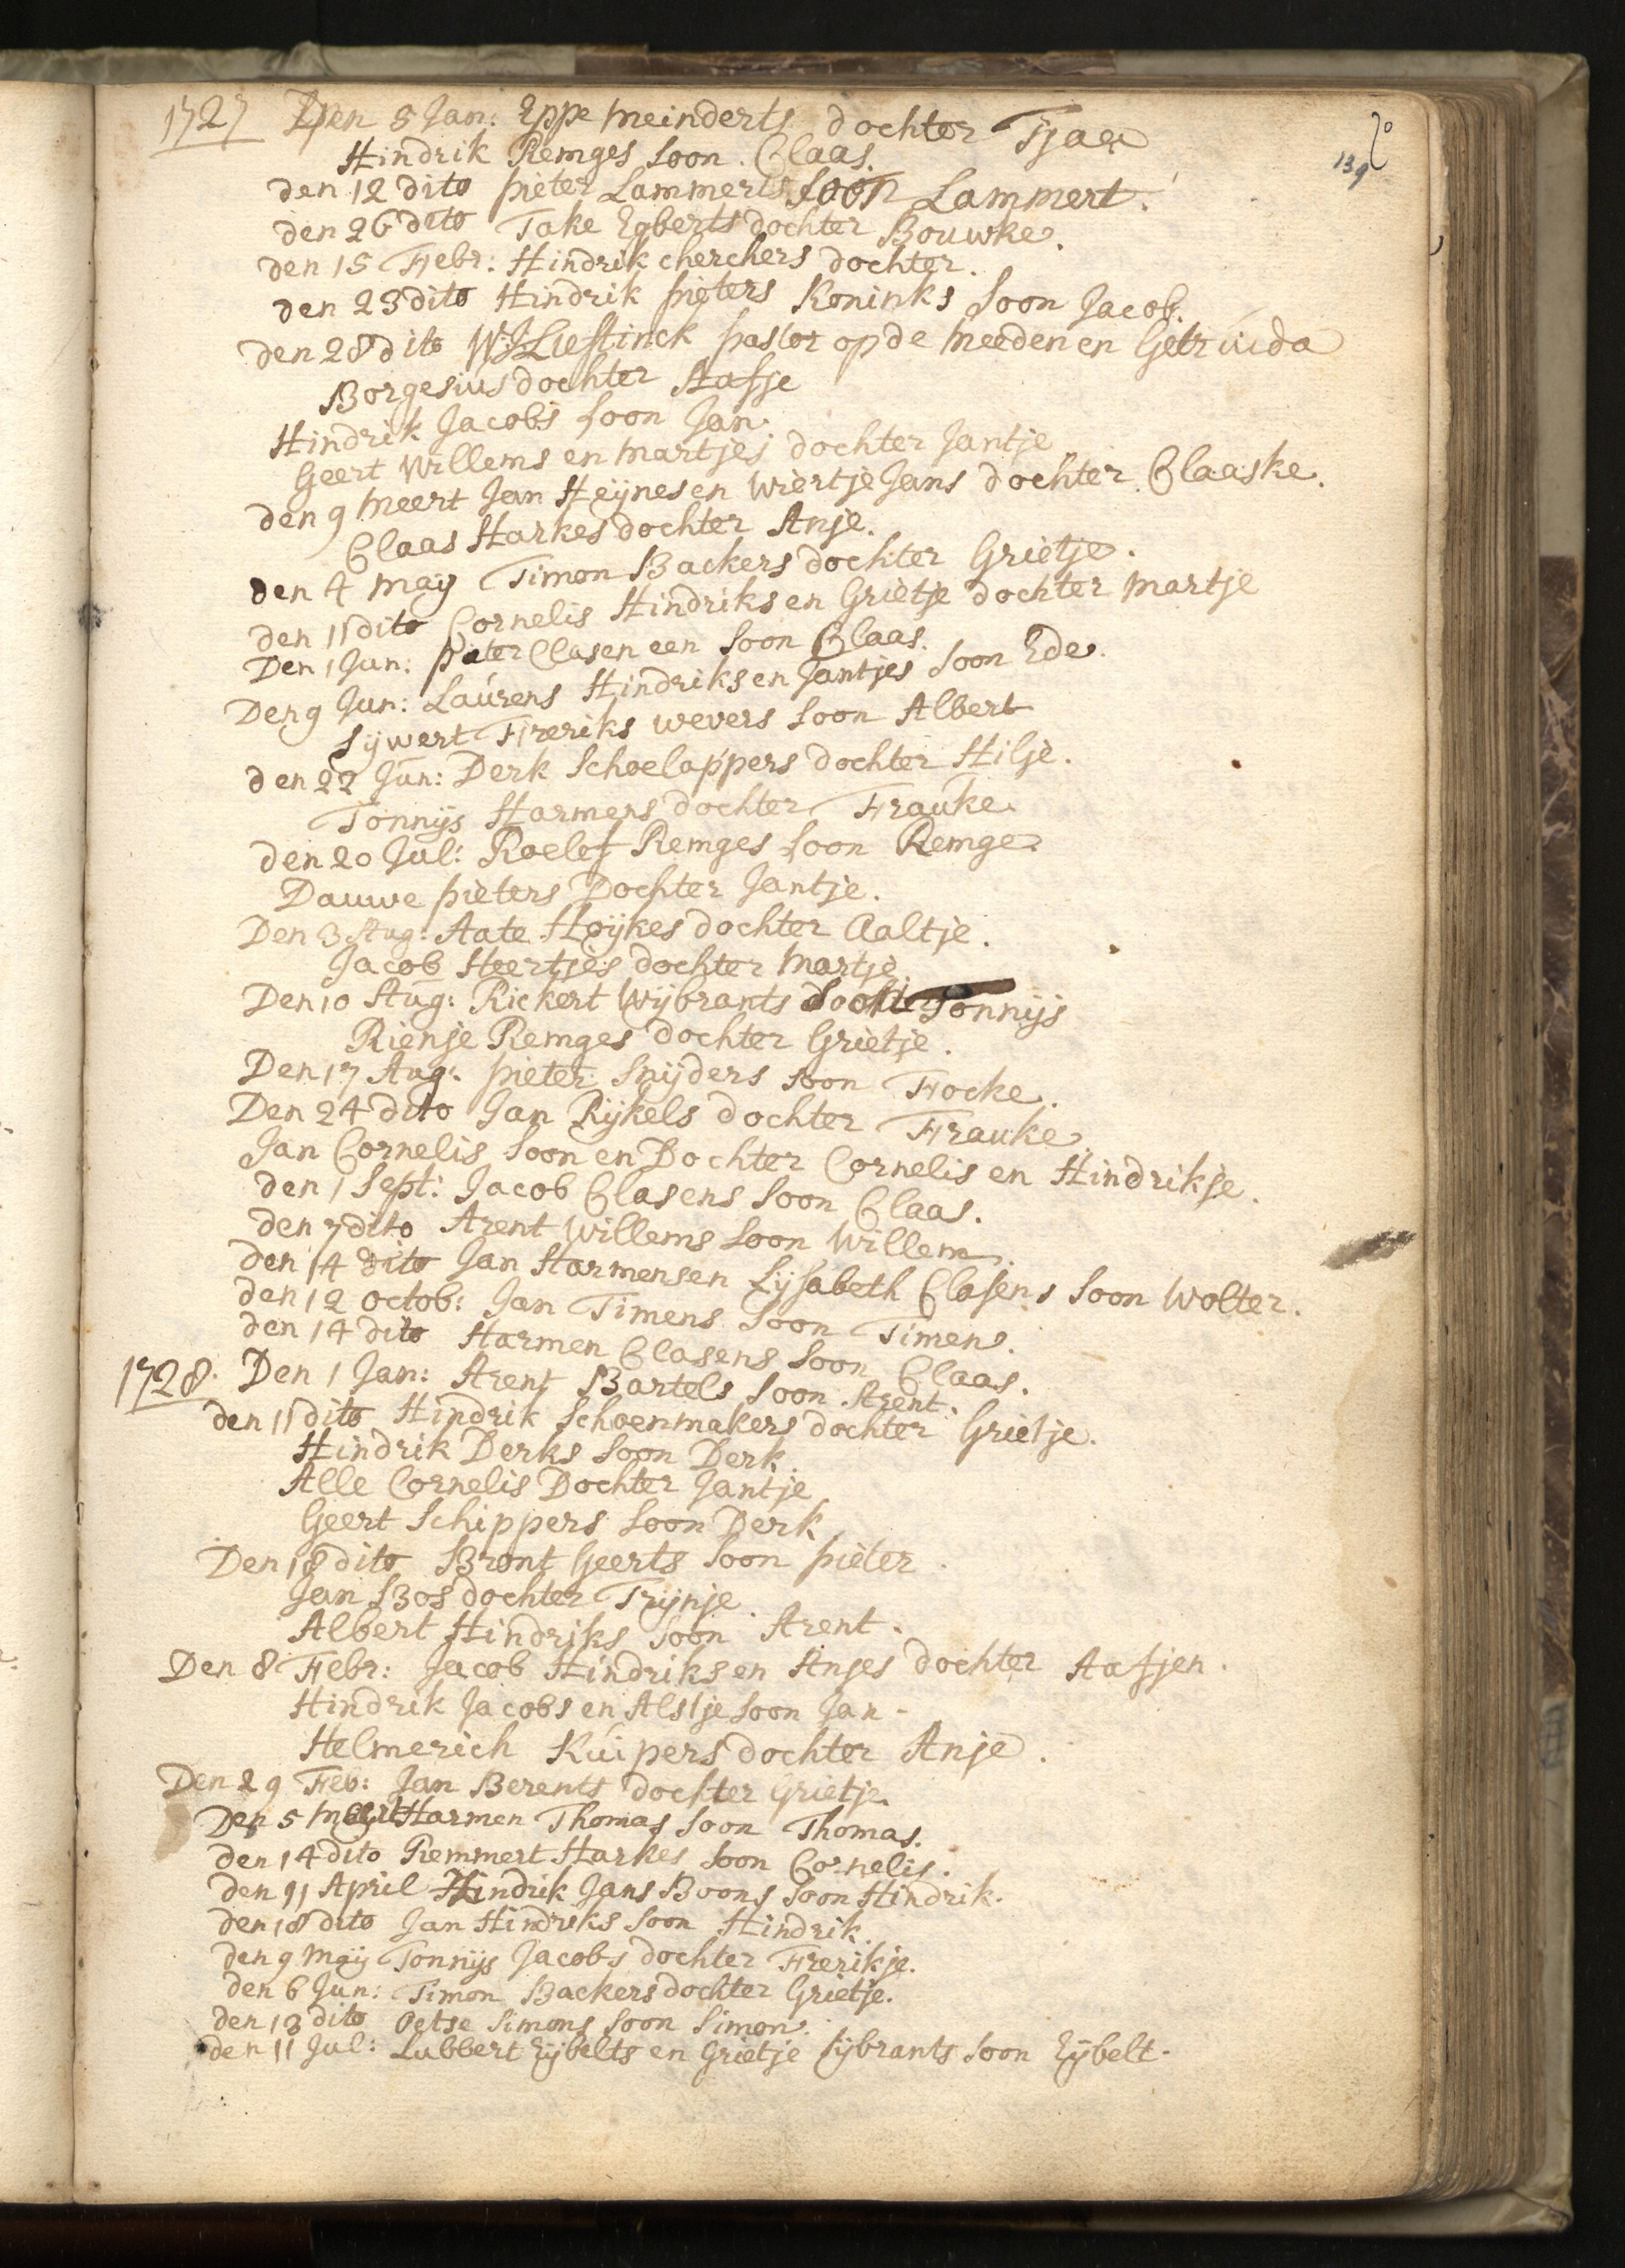 1727 Den 5 Jan: Eppe Meinderts dochter Tjaer
70
139
Hindrik Remges soon Claas.
den 12 dito Pieter Lammerts soon Lammert.
den 26 dito Take Egberts dochter Bouwke.
den 15 Febr: Hindrik cherchers dochter.
den 23 dito Hindrik Pieters Koninks soon Jacob.
den 28 dito W: Liestinck pastor op de Meeden en Getruida
Borgesius dochter Aafje
Hindrik Jacobs soon Jan.
Geert Willems en Martjes dochter Jantje
den 9 Meert Jan Heijnes en Wiertje Jans dochter Claaske.
Claas Harkes dochter Anje.
den 4 Maij Timon Backers dochter Grietje.
den 11 dito Cornelis Hindriks en Grietje dochter Martje
Den 1 Jun: Pieter Clasen een soon Claas.
Den 9 Jun: Laurens Hindriks en Jantjes soon Ede.
Sijwert Freriks wevers soon Albert
den 22 Jun: Derk Schoelappers dochter Hilje.
Tonnijs Harmens dochter Frauke
den 20 Jul: Roelef Remges soon Remge
Dauwe Pieters Dochter Jantje.
Den 3 Aug: Aate Hoijkes dochter Aaltje.
Jacob Heertjes dochter Martje
Den 10 Aug: Rickert Wijbrants soon Tonnijs
Rienje Remges dochter Grietje.
Den 17 Aug: Pieter Snijders soon Focke.
Den 24 dito Jan Rijkels dochter Frauke
Jan Cornelis soon en Dochter Cornelis en Hindrikje.
den 1 Sept: Jacob Clasens soon Claas.
den 7 dito Arent Willems soon Willem.
den 14 dito Jan Harmens en Lijsabeth Clasens soon Wolter.
den 12 Octob: Jan Timens soon Timen.
den 14 dito Harmen Clasens soon Claas.
1728. Den 1 Jan: Arent Bartels soon Arent.
den 11 dito Hindrik Schoenmakers dochter Grietje.
Hindrik Derks soon Derk.
Alle Cornelis Dochter Jantje
Geert Schippers soon Derk
Den 18 dito Bront Geerts soon Pieter
Jan Bos dochter Trijnje.
Albert Hindriks soon Arent.
Den 8 Febr: Jacob Hindriks en Anjes dochter Aafjen.
Hindrik Jacobs en Alstje soon Jan.
Helmerich Kuipers dochter Anje.
Den 29 Feb: Jan Berents dochter Grietje.
Den 5 Meert Harmen Thomas soon Thomas.
den 14 dito Remmert Harkes soon Cornelis.
den 11 April Hindrik Jans Boons soon Hindrik.
den 18 dito Jan Hindriks soon Hindrik.
den 9 Maij Tonnijs Jacobs dochter Frerikje.
den 6 Jun: Timon Backers dochter Grietje.
den 13 dito Oetse Simons soon Simon.
den 11 Jul: Lubbert Eijbelts en Grietje Sijbrants soon Eijbelt.